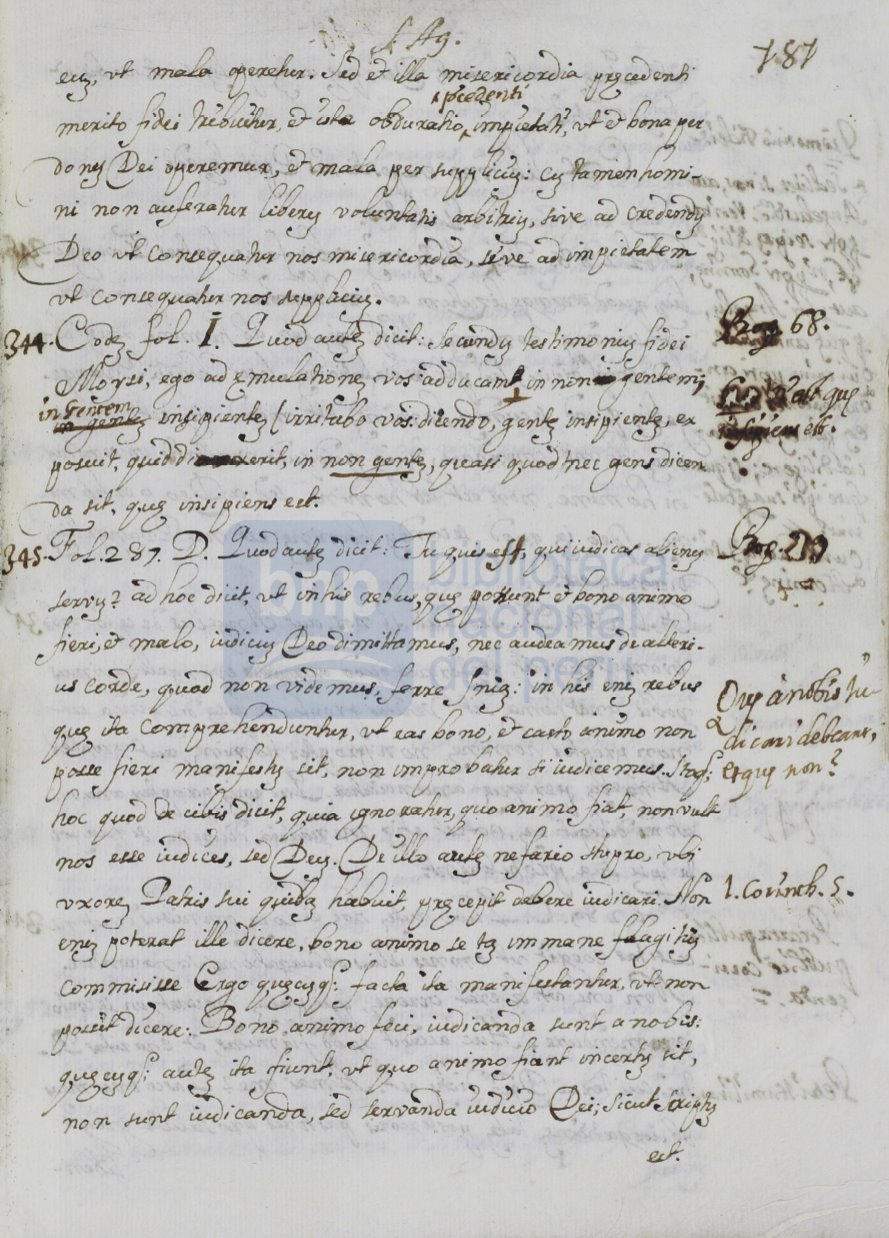 S. Ag.
181
eũ, ut mala operetur. Sed et illa misericordia præcedenti
præcedenti
merito fidei tribuitur, et ista obduratio impietati, ut et bona per
donũ Dei operemur, et mala per suppliciũ: cũ tamen homi-
ni non auferatur liberũ voluntatis arbitriũ, sive ad credendũ
Deo ut consequatur nos misericordia, sive ad impietatem
ut consequatur nos suppliciũ.
344. Codẽ fol. I. Quod autẽ dicit: Secundũ testimoniũ fidei
68.
Moysi, ego ad ęmulationẽ vos adducam in non gentem;
in gentem
in gentẽ insipientẽ irritabo vos: dicendo, gentẽ insipientẽ, ex
posuit, quid dixerit, in non gentẽ, quasi quod nec gens dicen
da sit, quę insipiens est.
345. Fol. 287. D. Quod autẽ dicit: Tu quis est, qui iudicas alienũ
servũ? ad hoc dicit, ut in his rebus, quę possunt et bono animo
fieri, et malo, iudiciũ Deo dimittamus, nec audeamus de alteri-
us corde, quod non videmus, ferre sniã: in his enĩ rebus
Quę a nobis iu-
dicari debeant,
et quę non?
quę ita comprehenduntur, ut eas bono, et casto animo non
posse fieri manifestũ sit, non improbatur si iudicemus. Itaq;
hoc quod de cibis dicit, quia ignoratur, quo animo fiat, non vult
nos esse iudices, sed Deũ. De illo autẽ nefario stupro, ubi
uxorẽ Patris sui quidã habuit, pręcepit debere iudicari. Non
1. Corinth. 5.
enĩ poterat ille dicere, bono animo se tã immane flagitiũ
commisisse Ergo quęcũq; facta ita manifestantur, ut non
possit dicere: Bono animo feci, iudicanda sunt a nobis:
quęcũq; autẽ ita fiunt, ut quo animo fiant incertũ sit,
non sunt iudicanda, sed servanda iudicio Dei; sicut scriptũ
est.
bnp biblioteca
nacional
del perú